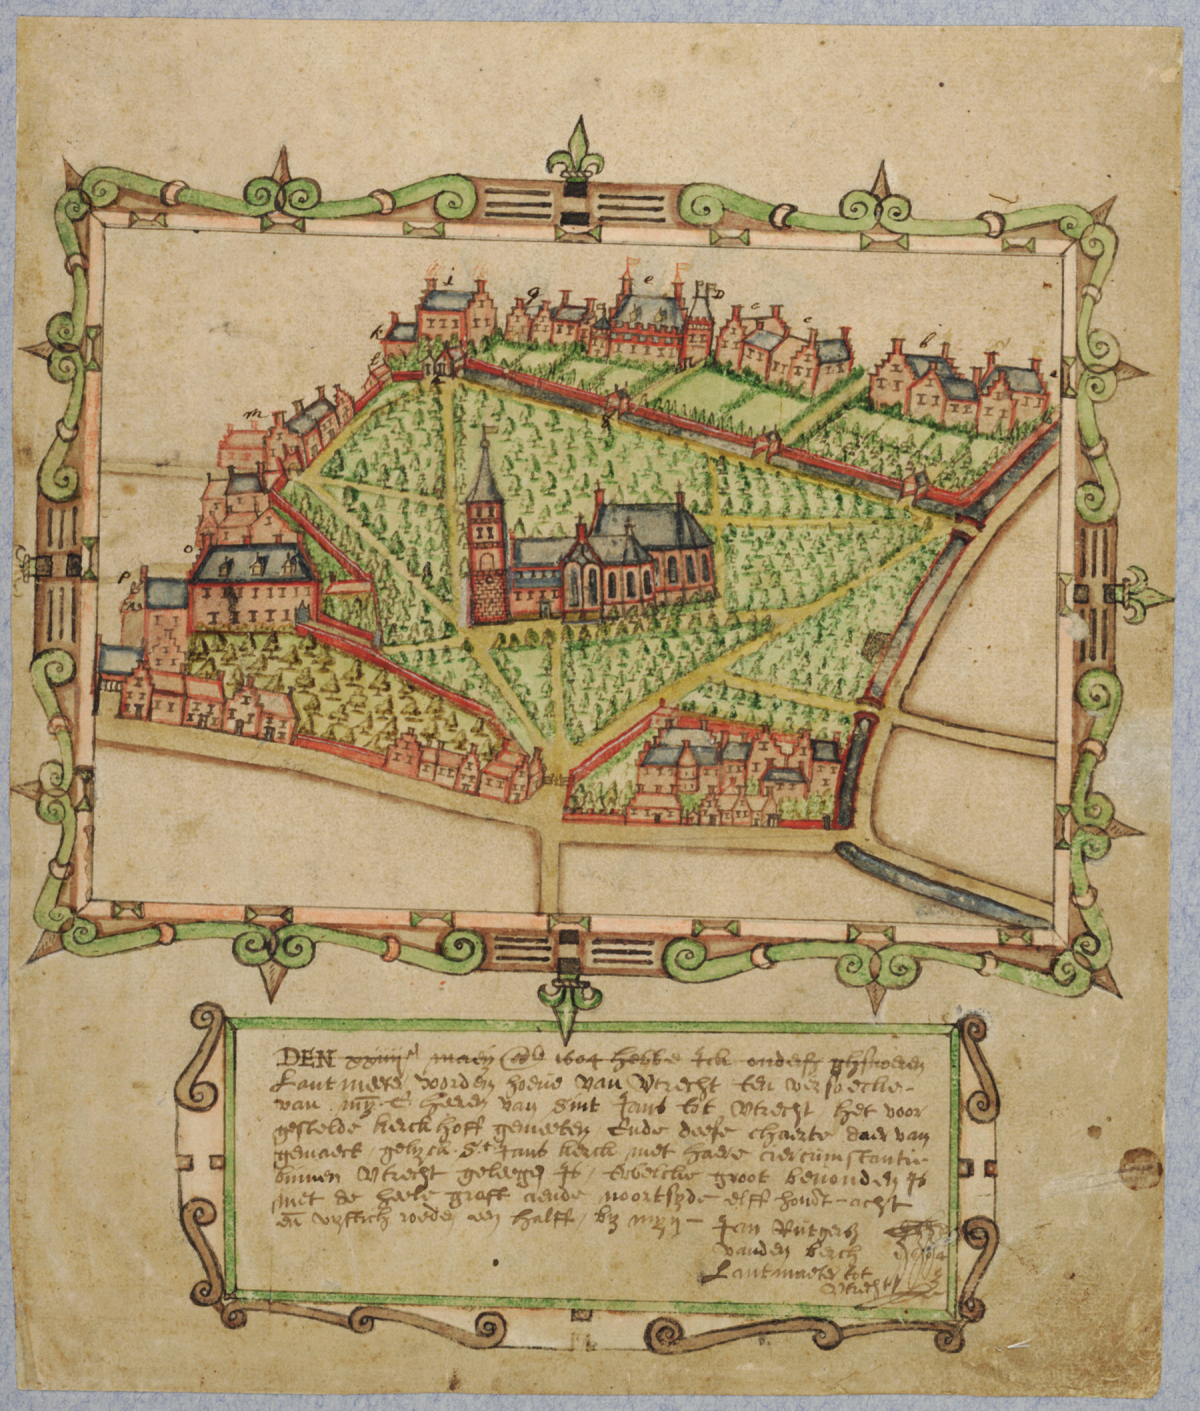 i
e
g
D
c
k
c
b
l
m
o
p
DEN xxiiij maeij 1604 hebbe Ick onderss ghesworen
Lantmeeter voorden hoeue van Vtrecht ten versoecke
van heeren van Sint Jans tot Vtrecht het voor
gestelde kerckhoff gemeeten Ende deese chaerte daer van
gemaeckt gelyck St Jans kerck met haere circumstantie
binnen Vtrecht geleegen is Welcke groot beuonden is
met de heele graft aende noortsyde elff hondt acht
en vyftich roeden een halff by myn
Jan Rutgersz
vanden berch
Lantmeeter tot
Vtrecht